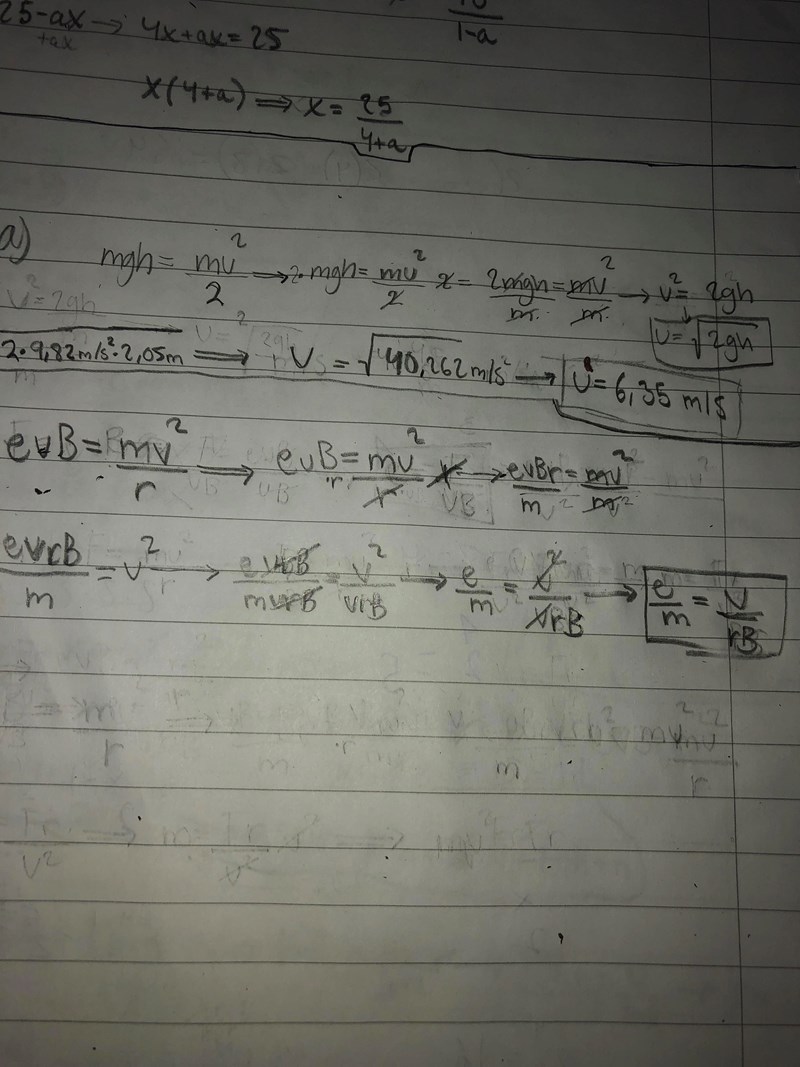 25-ax → 4x+ax=25
+ax
1-a
x(4+a) ⇒ x = 25/(4+a)
a) mgh = mv²/2 → 2·mgh = mv²/2 ·2 = 2mgh/m = mv²/m → v² = 2gh
v² = 2gh
v = √2gh
2·9,82m/s²·2,05m ⇒ v = √40,262 m/s² → v = 6,35 m/s
evB = mv²/r ⇒ evB = mv²/r ·r → evBr/m = mv²/m
evrB/m = v² → evrB/mvrB = v²/vrB → e/m = v²/vrB → e/m = v/rB